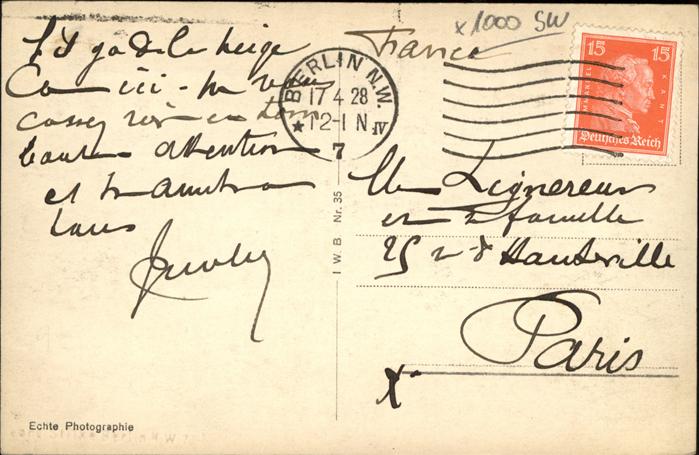 S'il y a de la neige
comme ici - ne vous
cassez rien en tom
bant attention
et
tous
France
x 1000 SW
BERLIN N.W.
17 4 28
* 12-1 N IV
7
15 15
KANT
Deutsches Reich
M Lignereux
et famille
25 r d Hauteville
Paris
X
I W B Nr. 35
Echte Photographie